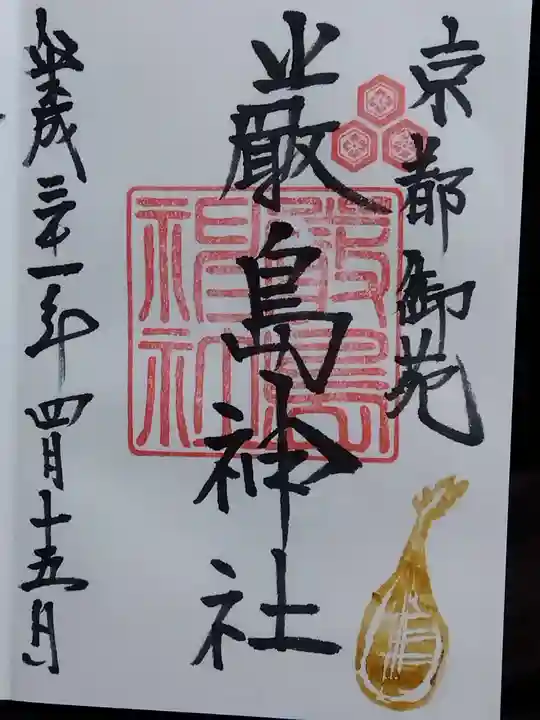 京都御苑
嚴島神社
嚴島神社
平成三十一年四月十五日